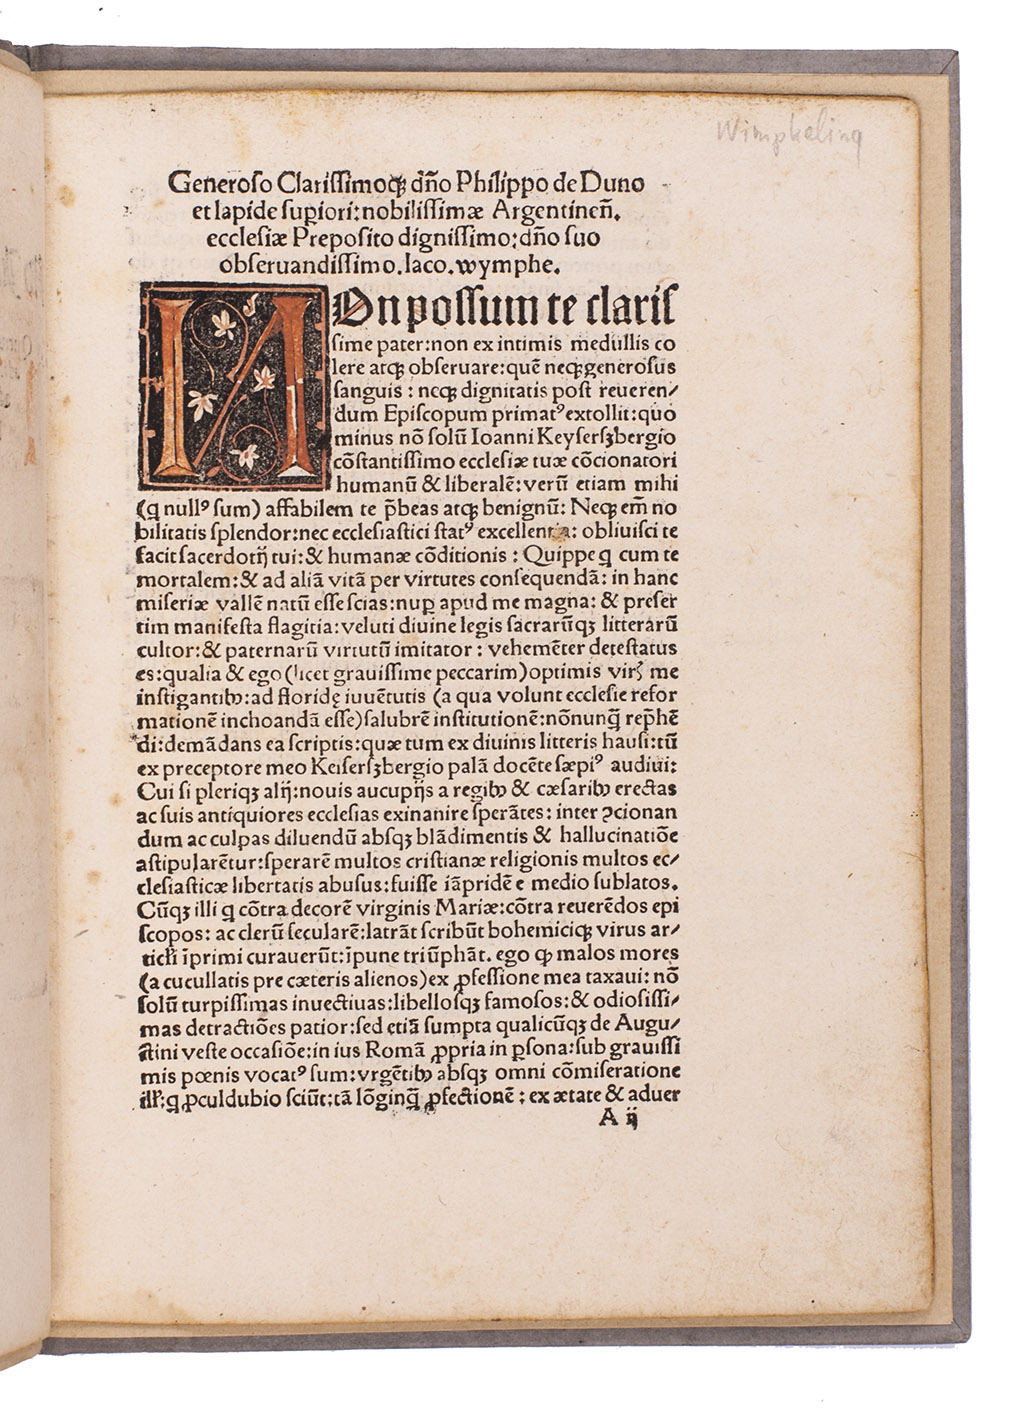 Wimpheling
Generoso Clarissimoqꝫ dño Philippo de Duno
et lapide suꝑiori: nobilissimæ Argentineñ.
ecclesiæ Preposito dignissimo: dño suo
obseruandissimo. Iaco. wymphe.
NOn possum te clariſ
sime pater: non ex intimis medullis co
lere atqꝫ obseruare: quē neqꝫ generosus
sanguis: neqꝫ dignitatis post reueren/
dum Episcopum primatꝰ extollit: quo
minus nō solū Ioanni Keysersꝫbergio
cōstantissimo ecclesiæ tuæ cōcionatori
humanū & liberalē: verū etiam mihi
(q nullꝰ sum) affabilem te p̄beas atqꝫ benignū: Neqꝫ em̄ no
bilitatis splendor: nec ecclesiastici statꝰ excellentia: obliuisci te
facit sacerdotij tui: & humanæ cōditionis: Quippe q cum te
mortalem: & ad aliā vitā per virtutes consequendā: in hanc
miseriæ vallē natū esse scias: nuꝑ apud me magna: & preser
tim manifesta flagitia: veluti diuine legis sacrarūqꝫ litterarū
cultor: & paternarū virtutū imitator: vehemēter detestatus
es: qualia & ego (licet grauissime peccarim) optimis virꝭ me
instigantibꝰ: ad floridę iuuētutis (a qua volunt ecclesie refor
mationē inchoandā esse) salubrē institutionē: nōnunq̄ rep̄hē
di: demādans ea scriptis: quæ tum ex diuinis litteris hausi: tū
ex preceptore meo Keisersꝫbergio palā docēte sæpiꝰ audiui:
Cui si pleriqꝫ alij: nouis aucupijs a regibꝰ & cæsaribꝰ erectas
ac suis antiquiores ecclesias exinanire sperātes: inter ꝯcionan
dum ac culpas diluendū absqꝫ blādimentis & hallucinatiōe
astipularētur: sperarē multos cristianæ religionis multos ec/
clesiasticæ libertatis abusus: fuisse iāpridē e medio sublatos.
Cūqꝫ illi q cōtra decorē virginis Mariæ: cōtra reuerēdos epi
scopos: ac clerū secularē: latrāt scribūt bohemiciqꝫ virus ar/
ticli īprimi curauerūt: īpune triūphāt. ego ꝙ malos mores
(a cucullatis pre cæteris alienos) ex ꝓfessione mea taxaui: nō
solū turpissimas inuectiuas: libellosqꝫ famosos: & odiosissi/
mas detractiōes patior: sed etiā sumpta qualicūqꝫ de Augu/
stini veste occasiōe: in ius Romā ꝓpria in ꝑsona: sub grauissi
mis pœnis vocatꝰ sum: vrgētibꝰ absqꝫ omni cōmiseratione
illꝭ: q ꝓculdubio sciūt: tā lōginq̄ ꝓfectionē: ex ætate & aduer
A ij